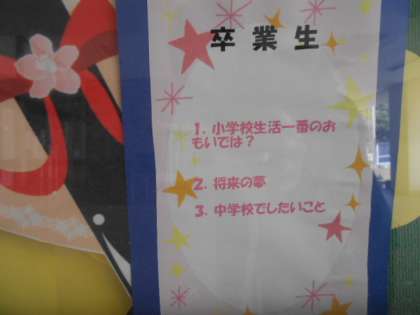 卒業生
1. 小学校生活一番のお
もいでは?
2. 将来の夢
3. 中学校でしたいこと